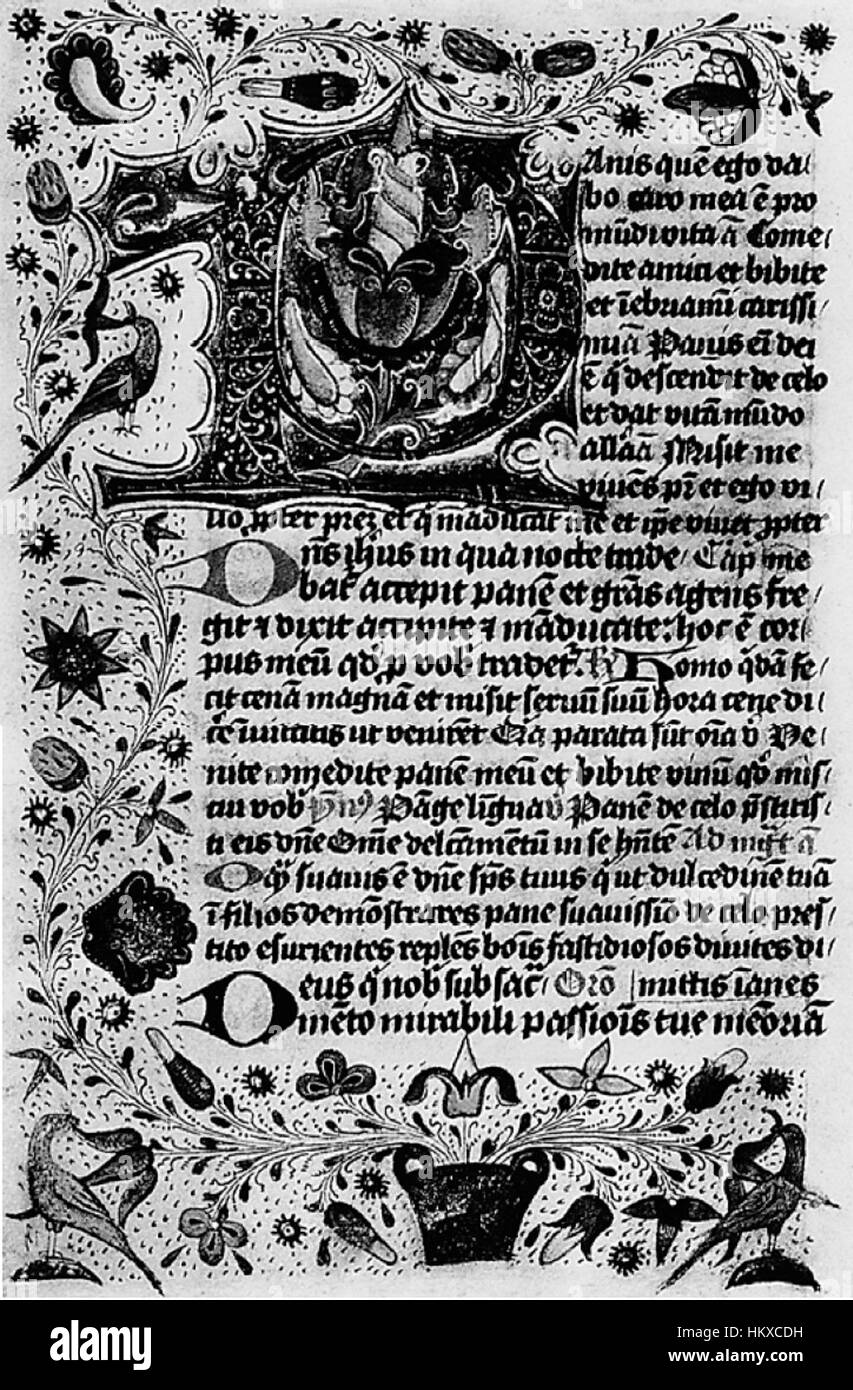 Anis quē ego da/
bo caro mea ē pro
mūdi vita ā Come/
dite amici et bibite
et īebriamī carissi/
mi ā Panis eī dei
ē q̄ descendit de celo
et dat vitā mūdo
allā ā Misit me
vivēs pr̄ et ego vi/
vo ꝓpter prēz et q̄ māducat me et ip̄e vivet ꝓpter
Dn̄s ih̄us in qua nocte trade/ Cap̄ me
bat̄ accepit panē et gr̄as agens fre/
git ⁊ dixit accipite ⁊ māducate: hoc ē cor/
pus meū qd̛ p̱ vob̛ tradet̛. Homo q̄dā fe/
cit cenā magnā et misit servū suū hora cene di/
cē īvitatis ut venirēt Q̄a parata sūt oīa v̄ Ve/
nite comedite panē meū et bibite vinū qd̛ mis/
cui vob̛ ymꝰ Pāge līgua v̄ Panē de celo p̄stitis/
ti eis dn̄e Om̄e delcāmentū in se hn̄tē Ad mgt̄ ā
O q̄ suavis ē dn̄e sp̄s tuus q̄ ut dulcedinē tuā
ī filios demōstrares pane suavissīo de celo pres/
tito esurientes replēs bōis fastidiosos divites di/
Deus q̄ nob̛ sub sac̄/ Orō mittis īanes
mēto mirabili passiōis tue memoriā
alamy
Image ID: HKXCDH
www.alamy.com